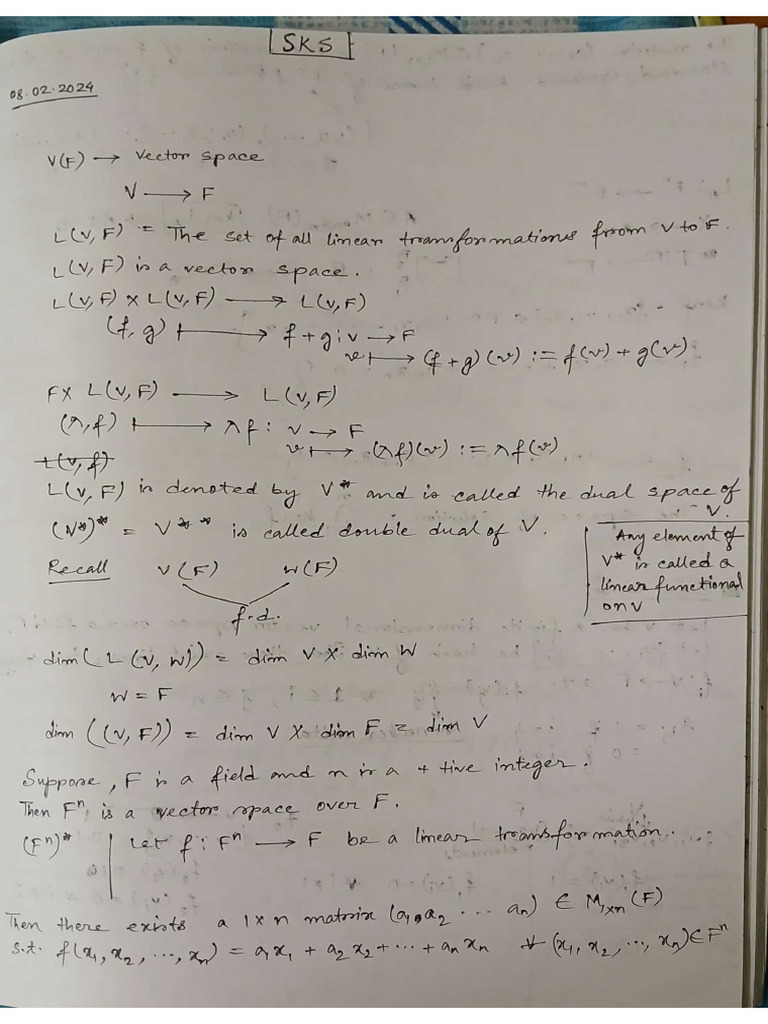 SKS
08.02.2024
V(F) → Vector space
V → F
L(V,F) = The set of all linear transformations from V to F.
L(V,F) is a vector space.
L(V,F) × L(V,F) → L(V,F)
(f,g) ↦ f+g : V → F
v ↦ (f+g)(v) := f(v) + g(v)
F × L(V,F) → L(V,F)
(λ,f) ↦ λf : V → F
v ↦ (λf)(v) := λf(v)
L(V,F)
L(V,F) is denoted by V* and is called the dual space of V.
(V*)* = V** is called double dual of V.
Any element of
V* is called a
linear functional
on V
Recall V(F) W(F)
f.d.
dim(L(V,W)) = dim V × dim W
W = F
dim((V,F)) = dim V × dim F = dim V
Suppose, F is a field and n is a +tive integer.
Then Fⁿ is a vector space over F.
(Fⁿ)* | Let f : Fⁿ → F be a linear transformation.
Then there exists a 1×n matrix (a₁, a₂ ... aₙ) ∈ M₁ₓₙ(F)
s.t. f(x₁, x₂, ..., xₙ) = a₁x₁ + a₂x₂ + ... + aₙxₙ ∀ (x₁, x₂, ..., xₙ) ∈ Fⁿ